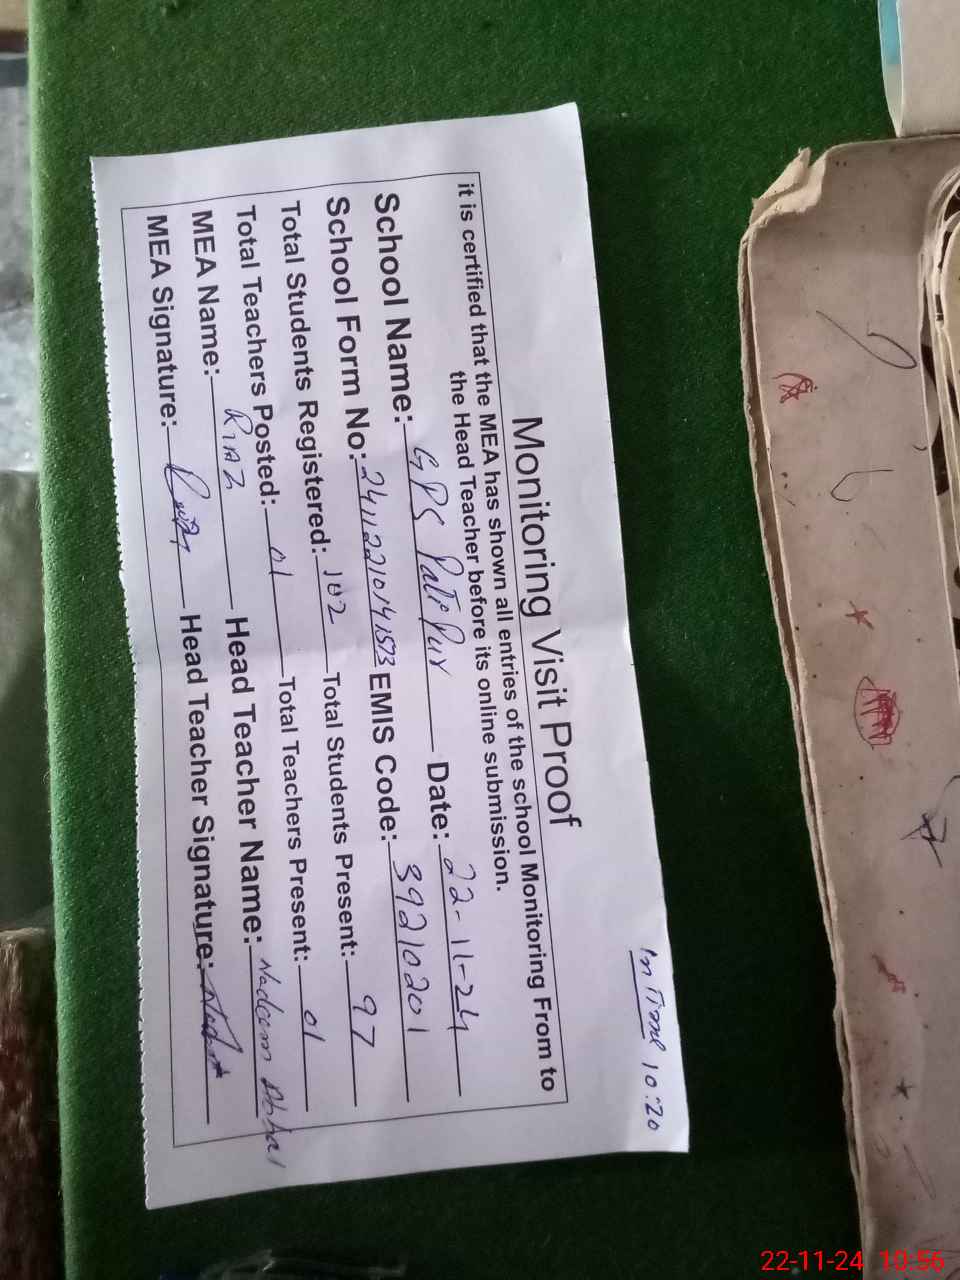 In Time 10:20
Monitoring Visit Proof
it is certified that the MEA has shown all entries of the school Monitoring From to
the Head Teacher before its online submission.
School Name: GPS Date: 22-11-24
School Form No: EMIS Code: 39210201
Total Students Registered: 102 Total Students Present: 97
Total Teachers Posted: 01 Total Teachers Present: 01
MEA Name: RIAZ Head Teacher Name: Nadeem
MEA Signature: Head Teacher Signature:
22-11-24 10:56